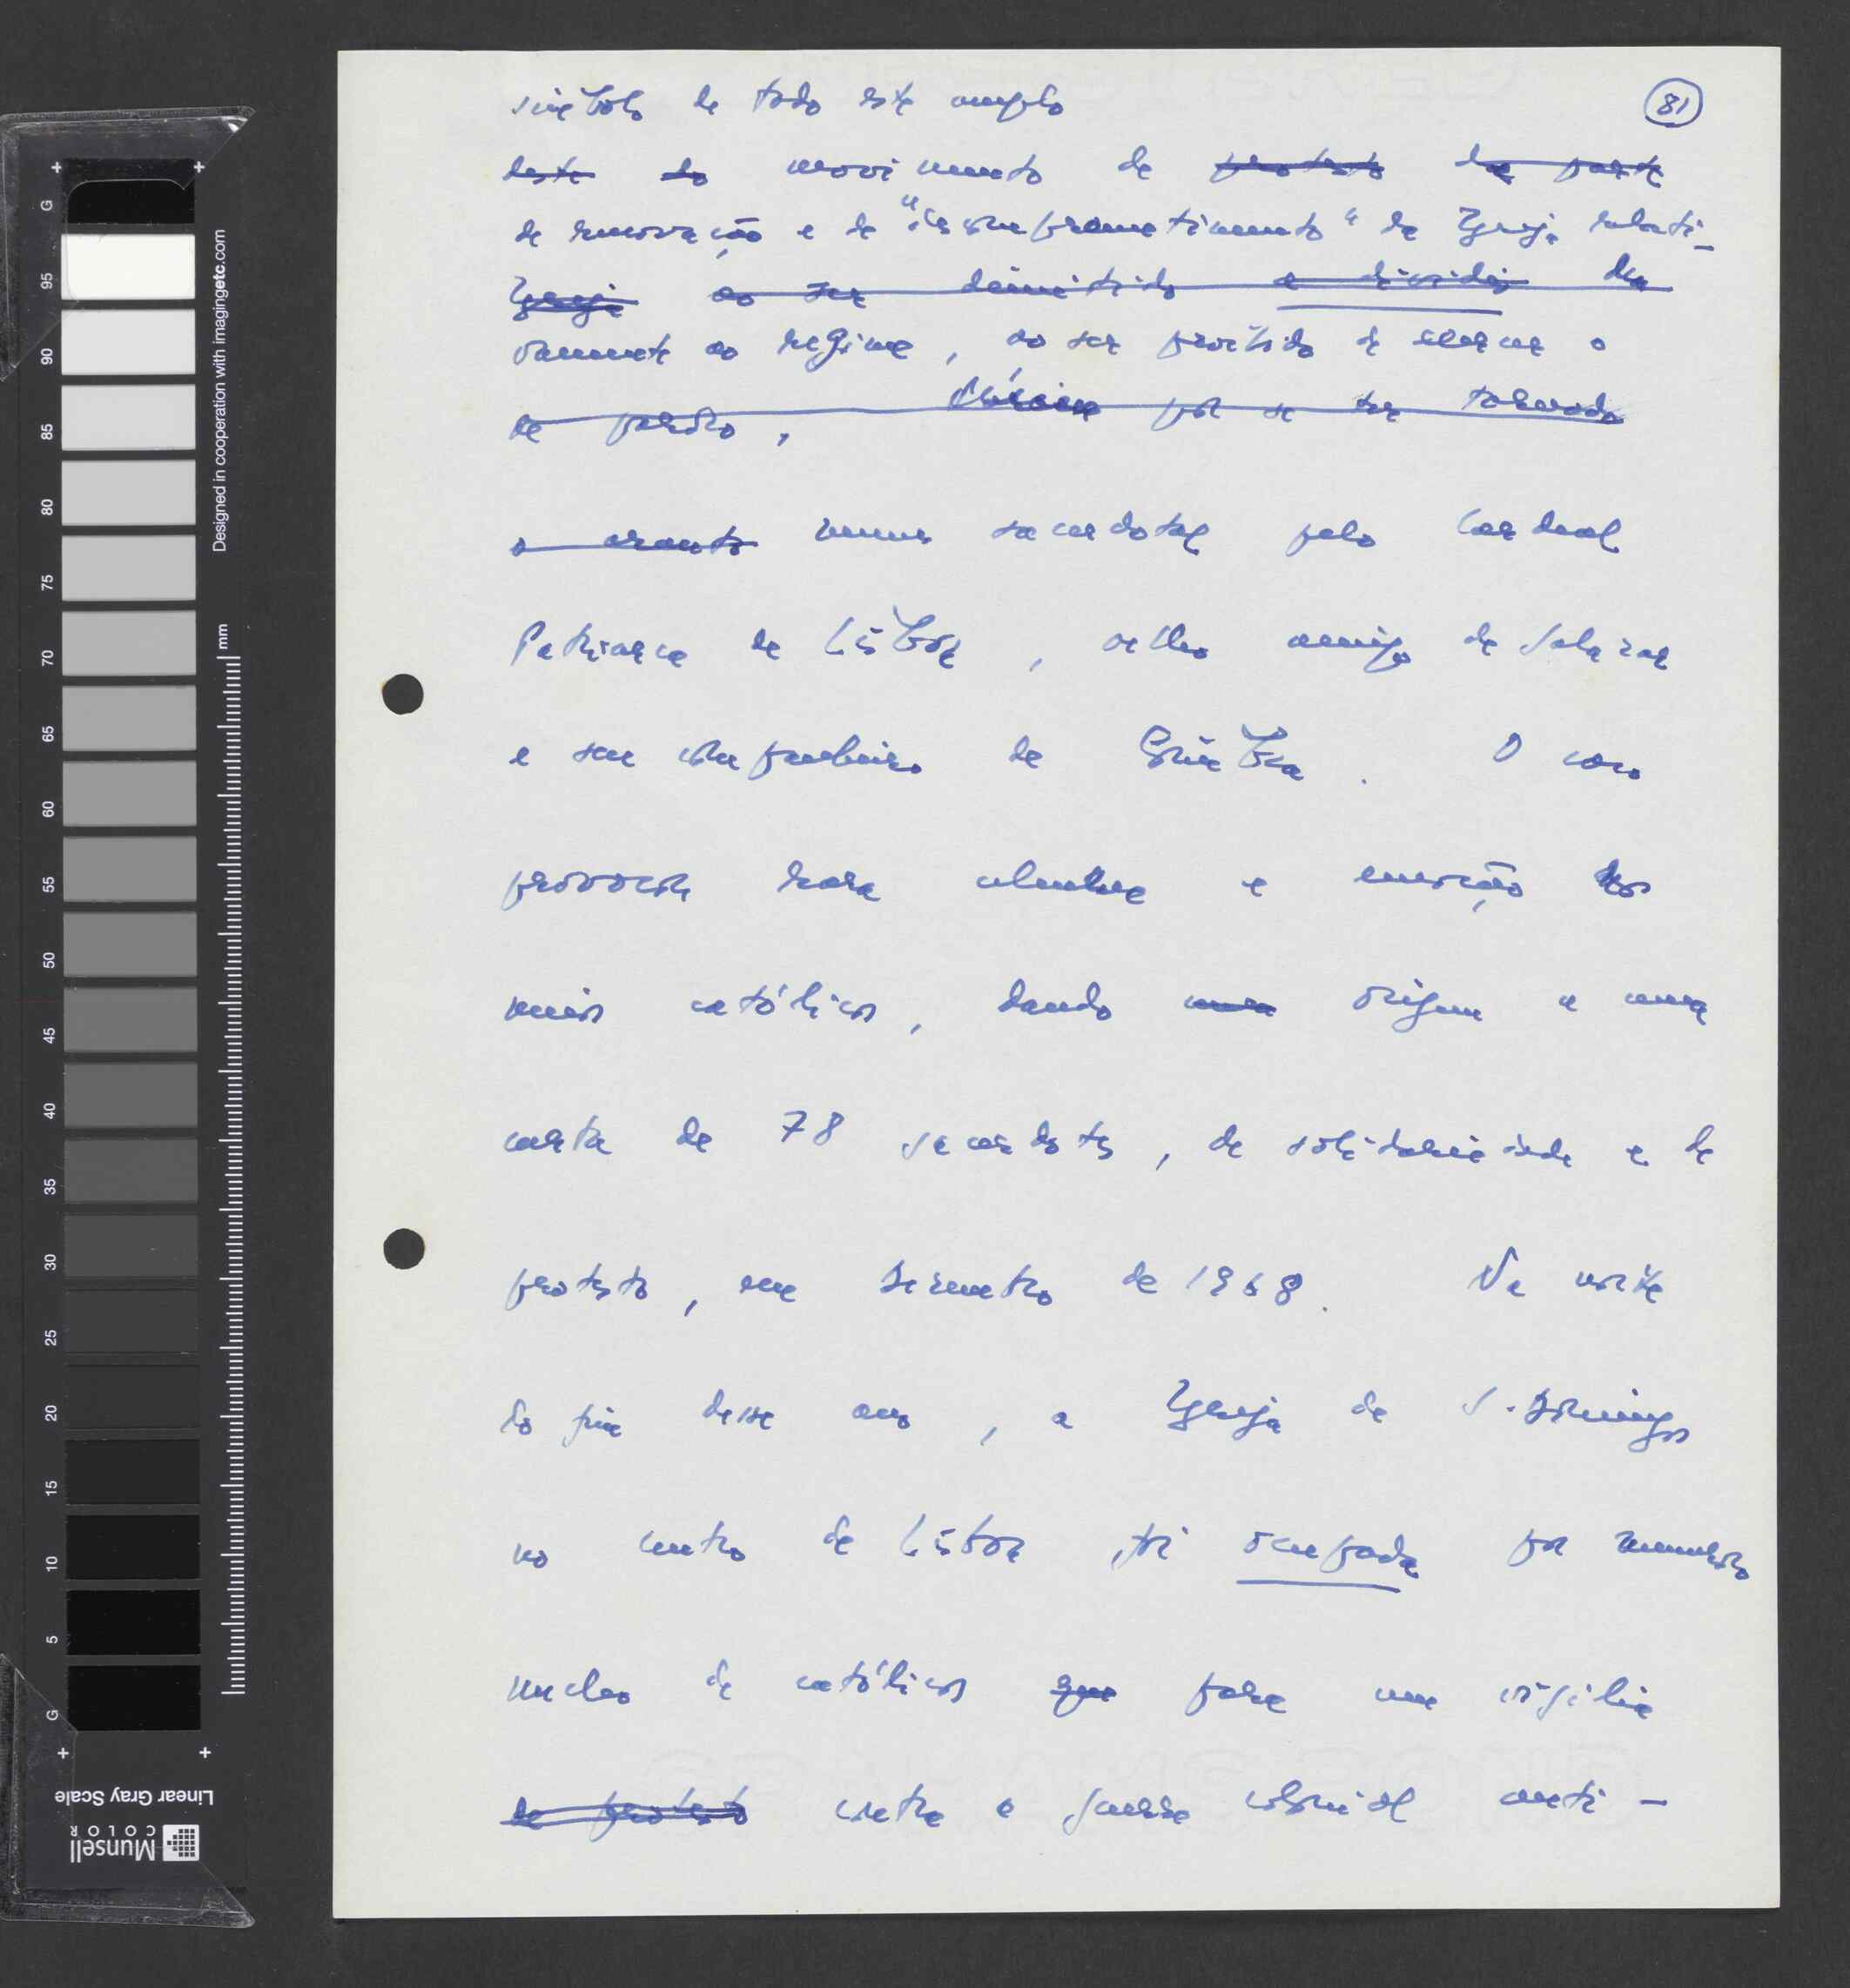 81
símbolo de todo este amplo
deste do movimento de protesto da parte
de renovação e de "descomprometimento" da Igreja relati-
Igreja ao ser demitido e dividia da
vamente ao regime, ao ser proibido de exercer o
de perdão, por se ter tornado
o munus sacerdotal pelo Cardeal
Patriarca de Lisboa, velho amigo de Salazar
e seu companheiro de Coimbra. O caso
provocou rara celeuma e emoção nos
meios católicos, dando origem a uma
carta de 78 sacerdotes, de solidariedade e de
protesto, em Dezembro de 1968. Na noite
do fim desse ano, a Igreja de S. Domingos
no centro de Lisboa, foi ocupada por numeroso
nucleo de católicos que para uma vigília
de protesto contra a guerra colonial conti-
G 95 90 85 80 75 70 65 60 55 50 45 40 35 30 25 20 15 10 5 G
mm
Designed in cooperation with imagingetc.com
Linear Gray Scale
Munsell
COLOR